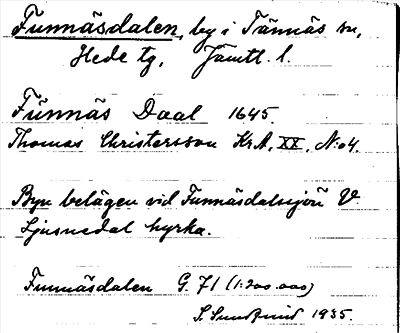 Funnäsdalen, by i Tännäs sn,
Hede tg, Jämtl. l.
Fünnäs Daal 1645.
Thomas Christersson KrA, XX, N:o 4.
Byn belägen vid Funnäsdalssjön V.
Ljusnedal kyrka.
Funnäsdalen G. 71 (1:200.000)
S. Sundlind 1935.